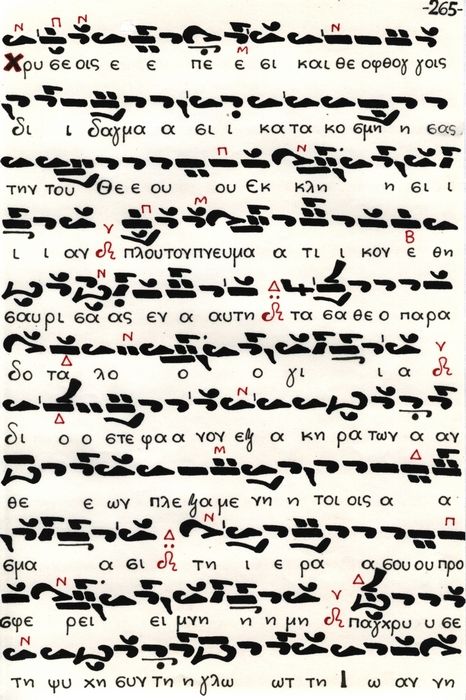 -265-
Χρυ σε οις ε ε πε ε σι και θε οφθογ γοις
δι ι δαγμα α σι ι κα τα κο σμη η σας
την του Θε ε ου ου Εκ κλη η σι ι
ι ι αν πλουτον πνευμα α τι ι κον ε θη
σαυ ρι σα ας εν α αυτη τα σα θε ο παρα
δο τα λο ο ο γι ι α
δι ο ο στε φα α νον εξ α κη ρα των α αν
θε ε ων πλε ξα με νη η τοι οις α α
σμα α σι τη ι ε ρα α σου ου προ
σφε ρει ει μνη η η μη παγχρυ υ σε
τη ψυ χη συν τη η γλω ωτ τη Ι ω αν νη